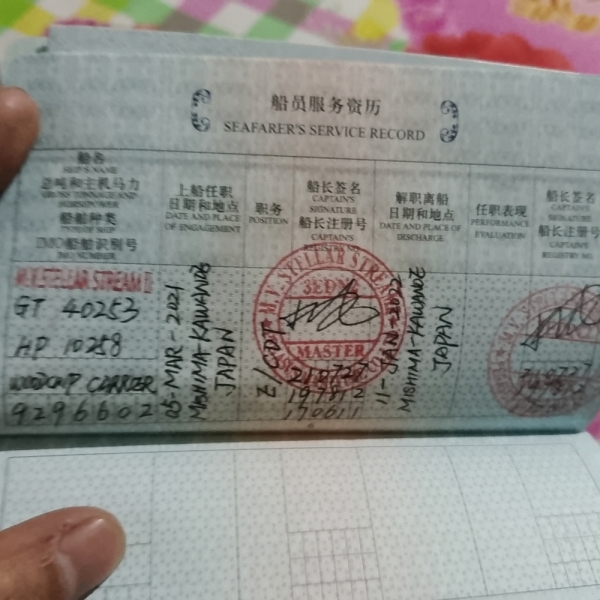 船员服务资历
SEAFARER'S SERVICE RECORD
船名
SHIP'S NAME
总吨和主机马力
GROSS TONNAGE AND
HORSEPOWER
船舶种类
TYPE OF SHIP
IMO船舶识别号
IMO NUMBER
上船任职
日期和地点
DATE AND PLACE
OF ENGAGEMENT
职务
POSITION
船长签名
CAPTAIN'S
SIGNATURE
船长注册号
CAPTAIN'S
REGISTRY NO.
解职离船
日期和地点
DATE AND PLACE OF
DISCHARGE
任职表现
PERFORMANCE
EVALUATION
船长签名
CAPTAIN'S
SIGNATURE
船长注册号
CAPTAIN'S
REGISTRY NO.
M.V.STELLAR STREAM II
GT 40253
HP 10258
WOODCHIP CARRIER
9296602
05-MAR-2021
MISHIMA-KAWANOE
JAPAN
E/CDT
M.V. STELLAR STREAM
MASTER
210727
197812
170611
11-JAN-2022
MISHIMA-KAWANOE
JAPAN